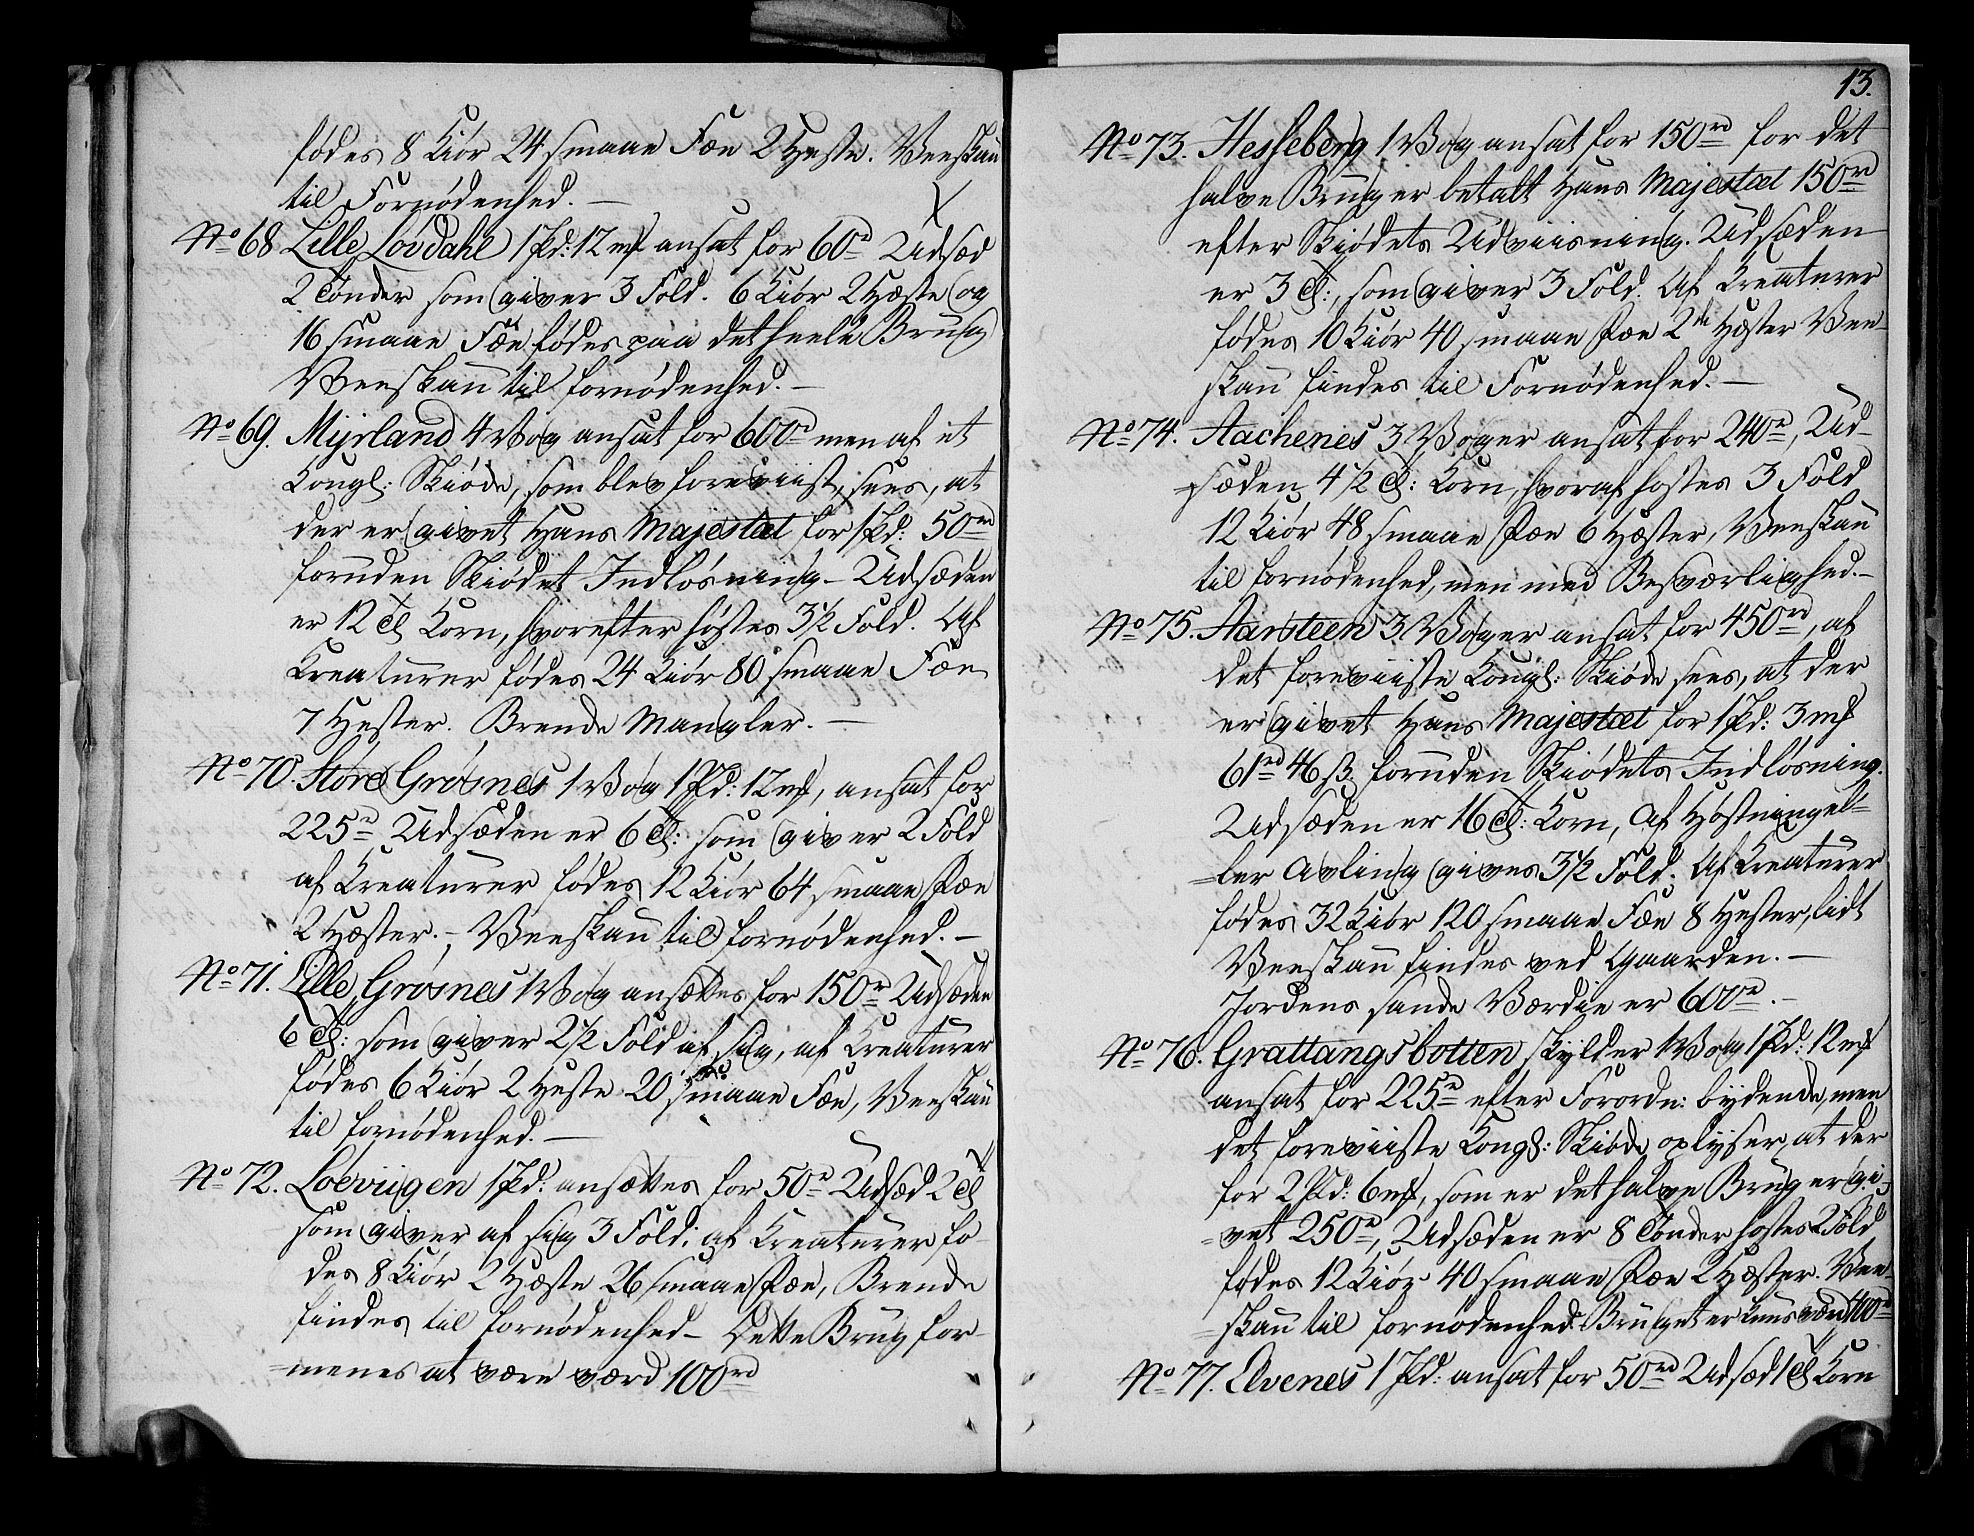 fødes 8 Kiör 24 smaae Fæe 2 Heste. Veeskau
til Fornødenhed. —
No 68 Lille Lövdahl 1 Pd: 12 mk ansat for 60rd Udsæd
2 Tönder som giver 3 Fold. 6 Kiör 2 Hæste og
16 smaae Fæe födes paa det heele Brug
Veeskau til fornödenhed. —
No 69. Mijrland 4 Vog ansat for 600rd men af et
Kongl: Skiöde, som blev foreviist, sees, at
der er givet Hans Majestæt for 1 Pd: 50rd
foruden Skiödet Indlösning — Udsæden
er 12 Td Korn, hvorefter höstes 3½ Fold. Af
Kreaturer födes 24 Kiör 80 smaae Fæe
7 Hester. Brende Mangler. —
No 70. Store Gröснes 1 Vog 1 Pd: 12 mk, ansat for
225rd Udsæden er 6 Td: som giver 2 Fold
af Kreaturer födes 12 Kiör 64 smaae Fæe
2 Hæster. — Veeskau til fornödenhed. —
No 71. Lille Grösnes 1 Vog ansættes for 150rd Udsæden
6 Td: som giver 2½ Fold af sig, af Kreaturer
födes 6 Kiör 2 Heste 20 smaae Fæe, Veeskau
til fornödenhed. —
No 72. Loeviigen 1 Pd: ansættes for 50rd Udsæd 2 Td
som giver af sig 3 Fold; af Kreaturer fö-
des 8 Kiör 2 Hæste 26 smaae Fæe, Brende
findes til fornödenhed — Dette Brug for-
=menes at være værd 100rd
13.
No 73. Hesseberg 1 Vog ansat for 150rd for det
halve Brug er betalt Hans Majestæt 150rd
efter Skiödets Udviisning. Udsæden
er 3 Td:, som giver 3 Fold. Af Kreaturer
födes 10 Kiör 40 smaae Fæe 2de Hæster Vee-
skau findes til Fornödenhed. —
No 74. Aachenes 3 Voger ansat for 240rd, Ud-
=sæden 4½ Td: Korn, hvoraf höstes 3 Fold
12 Kiör 48 smaae Fæe 6 Hæster, Veeskau
til fornödenhed, men med Besværlighed. —
No 75. Aarsteen 3 Voger ansat for 450rd, af
det foreviiste Kongl: Skiöde sees, at der
er givet Hans Majestæt for 1 Pd: 3 mk
61rd 46 ß. foruden Skiödets Indlösning.
Udsæden er 16 Td: Korn, af Höstning el=
=ler Avling gives 3½ Fold. Af Kreaturer
födes 32 Kiör 120 smaae Fæe 8 Hester, lidt
Veeskau findes ved Gaarden. —
Jordens sande Værdie er 600rd. —
No 76. Grattangsbotten skylder 1 Vog 1 Pd: 12 mk
ansat for 225rd efter Forordn: bydende, men
det foreviiste Kongl: Skiöde oplyser, at der
for 2 Pd: 6 mk, som er det halve Brug er gi-
=vet 250rd, Udsæden er 8 Tönder höstes 2 Fold
födes 12 Kiör 40 smaae Fæe 2 Hæster. Vee-
=skau til fornödenhed. Bruget er kuns værd 400rd
No 77. Elvenes 1 Pd: ansat for 50rd Udsæd 1 Td Korn